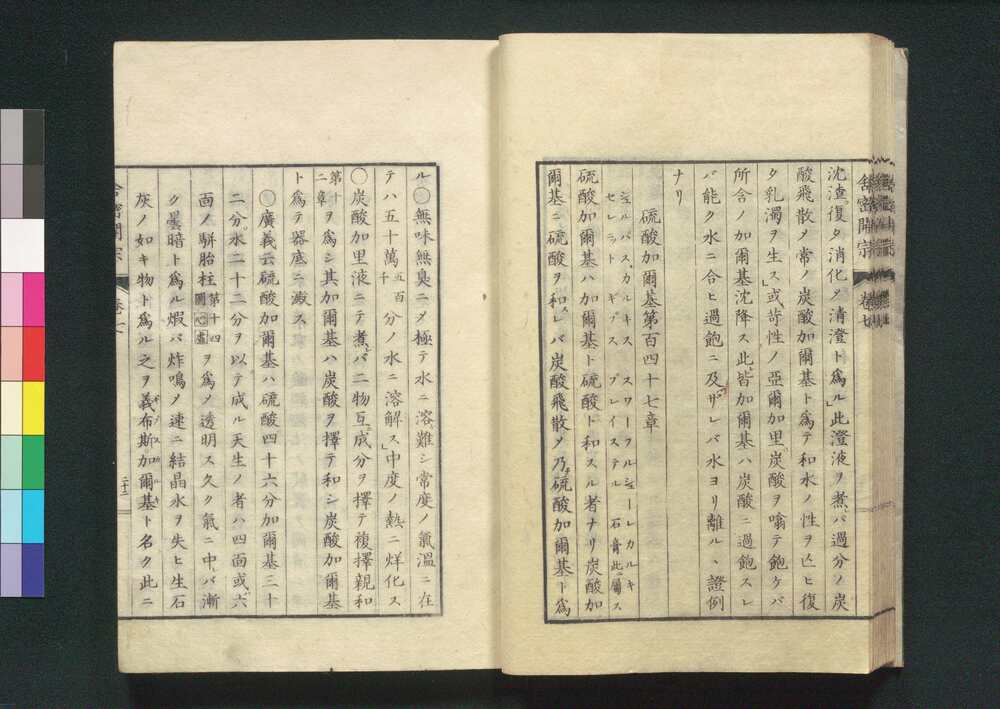 舎密開宗 卷七
沈渣復タ消化〆清澄ト爲ル」此澄液ヲ煮レバ過分ノ炭
酸飛散〆常ノ炭酸加爾基ト爲テ和水ノ性ヲ亡ヒ復
タ乳濁ヲ生ス」或苛性ノ亞爾加里炭酸ヲ喰テ飽ケバ
所含ノ加爾基沈降ス此皆加爾基ハ炭酸ニ過飽スレ
バ能ク水ニ合ヒ過飽ニ及ザレバ水ヨリ離ルヽ證例
ナリ
硫酸加爾基第百四十七章
シュルパスカルキス スワーフルシューレカルキ
セレニット ギプス プレイステル 石膏此ニ屬ス
硫酸加爾基ハ加爾基ト硫酸ト和スル者ナリ炭酸加
爾基ニ硫酸ヲ和スレバ炭酸飛散〆乃チ硫酸加爾基ト爲
ル○無味無臭ニ〆極テ水ニ溶難シ常度ノ氣溫ニ在
テハ五十萬五百千分ノ水ニ溶解ス」中度ノ熱ニ烊化ス
○炭酸加里液ニテ煮レバ二物互ニ成分ヲ擇テ複擇親和
第十二章ヲ爲シ其加爾基ハ炭酸ヲ擇テ和シ炭酸加爾基
ト爲テ器底ニ澱ス
○廣義云硫酸加爾基ハ硫酸四十六分加爾基三十
二分水二十二分ヲ以テ成ル天生ノ者ハ四面或ハ六
面ノ駢胎柱第十四圖心虛ヲ爲〆透明ス久ク氣ニ中レバ漸
ク曇暗ト爲ル煆バ炸鳴〆速ニ結晶水ヲ失ヒ生石
灰ノ如キ物ト爲ル之ヲ義布斯加爾基ト名ク此ニ
舎密開宗 卷七 二十二